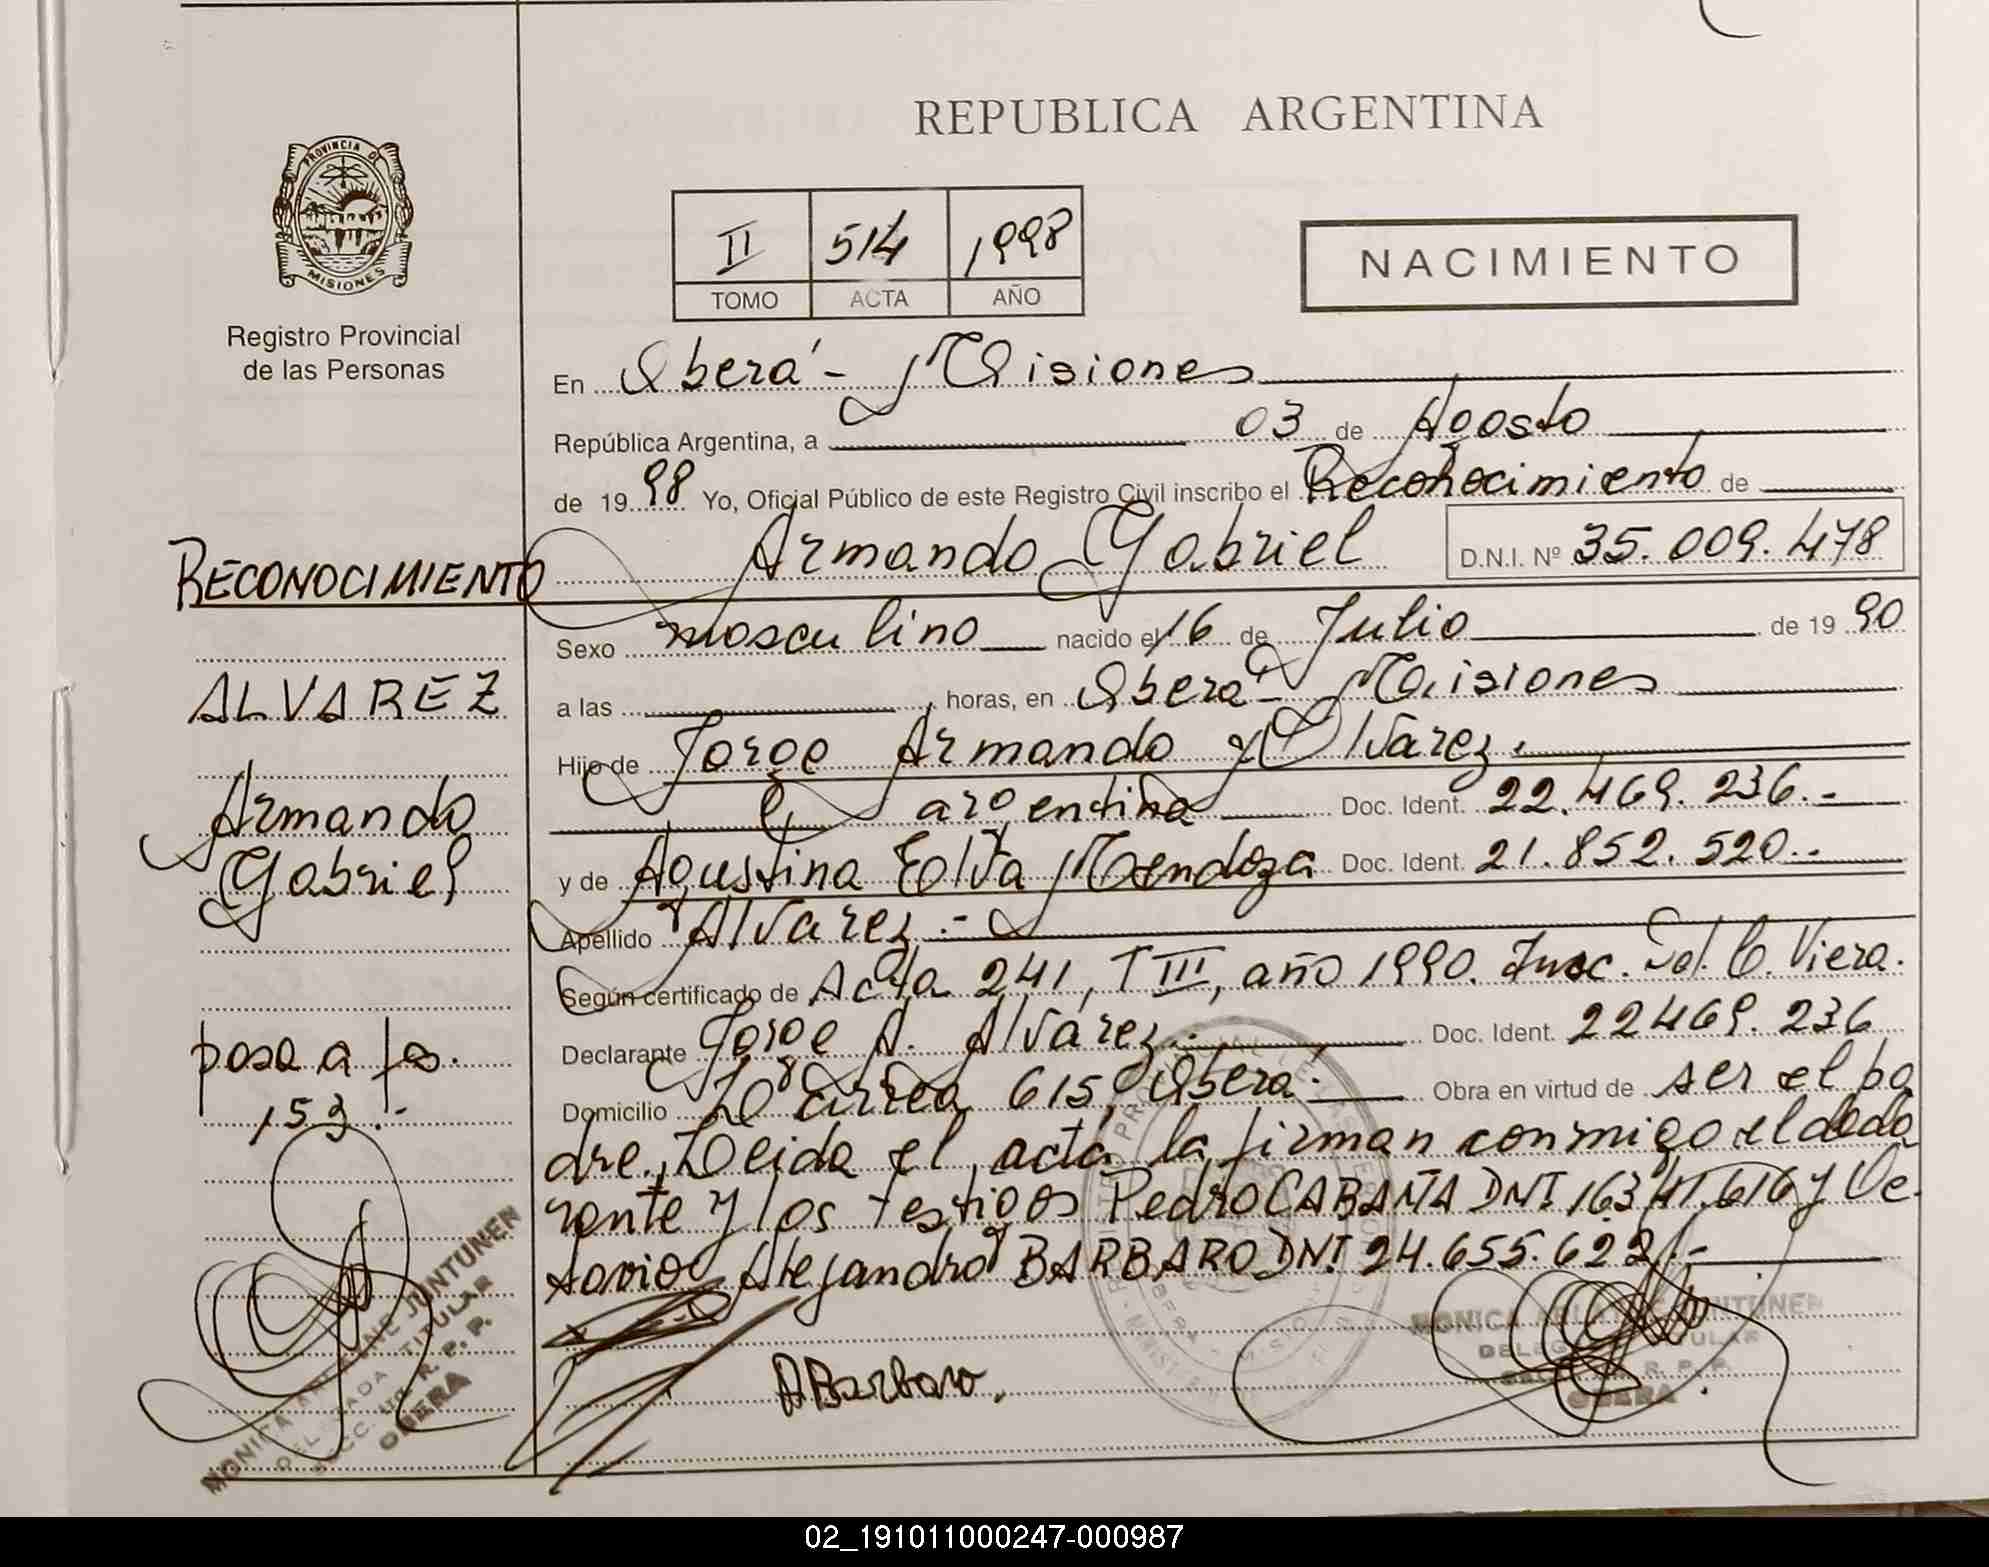 REPUBLICA ARGENTINA
PROVINCIA DE
MISIONES
Registro Provincial
de las Personas
II 514 1998
TOMO ACTA AÑO
NACIMIENTO
En Oberá - Misiones
República Argentina, a 03 de Agosto
de 1998 Yo, Oficial Público de este Registro Civil inscribo el Reconocimiento de
Armando Gabriel D.N.I. Nº 35.009.478
Sexo masculino nacido el 16 de Julio de 1990
a las horas, en Oberá - Misiones
Hijo de Jorge Armando Alvarez.
argentina Doc. Ident. 22.469.236.-
y de Agustina Elva Mendoza Doc. Ident. 21.852.520.-
Apellido Alvarez.-
Según certificado de Acta 241, T III, año 1990. C. Viera.
Declarante Jorge A. Alvarez.- Doc. Ident. 22469.236
Domicilio Larrea 615, Oberá.- Obra en virtud de ser el pa
dre. Leida el acta la firman conmigo el decla
rante y los testigos Pedro CABAÑA DNI y Oc
tavio Alejandro BARBARO DNI 24.655.622.-
RECONOCIMIENTO
ALVAREZ
Armando
Gabriel
pasa a fs.
153.-
ABarbaro.
MONICA JUNTUNEN
DELEGADA TITULAR
SECC. R. P. P.
OBERA
MONICA JUNTUNEN
R. P. P.
OBERA
02_191011000247-000987